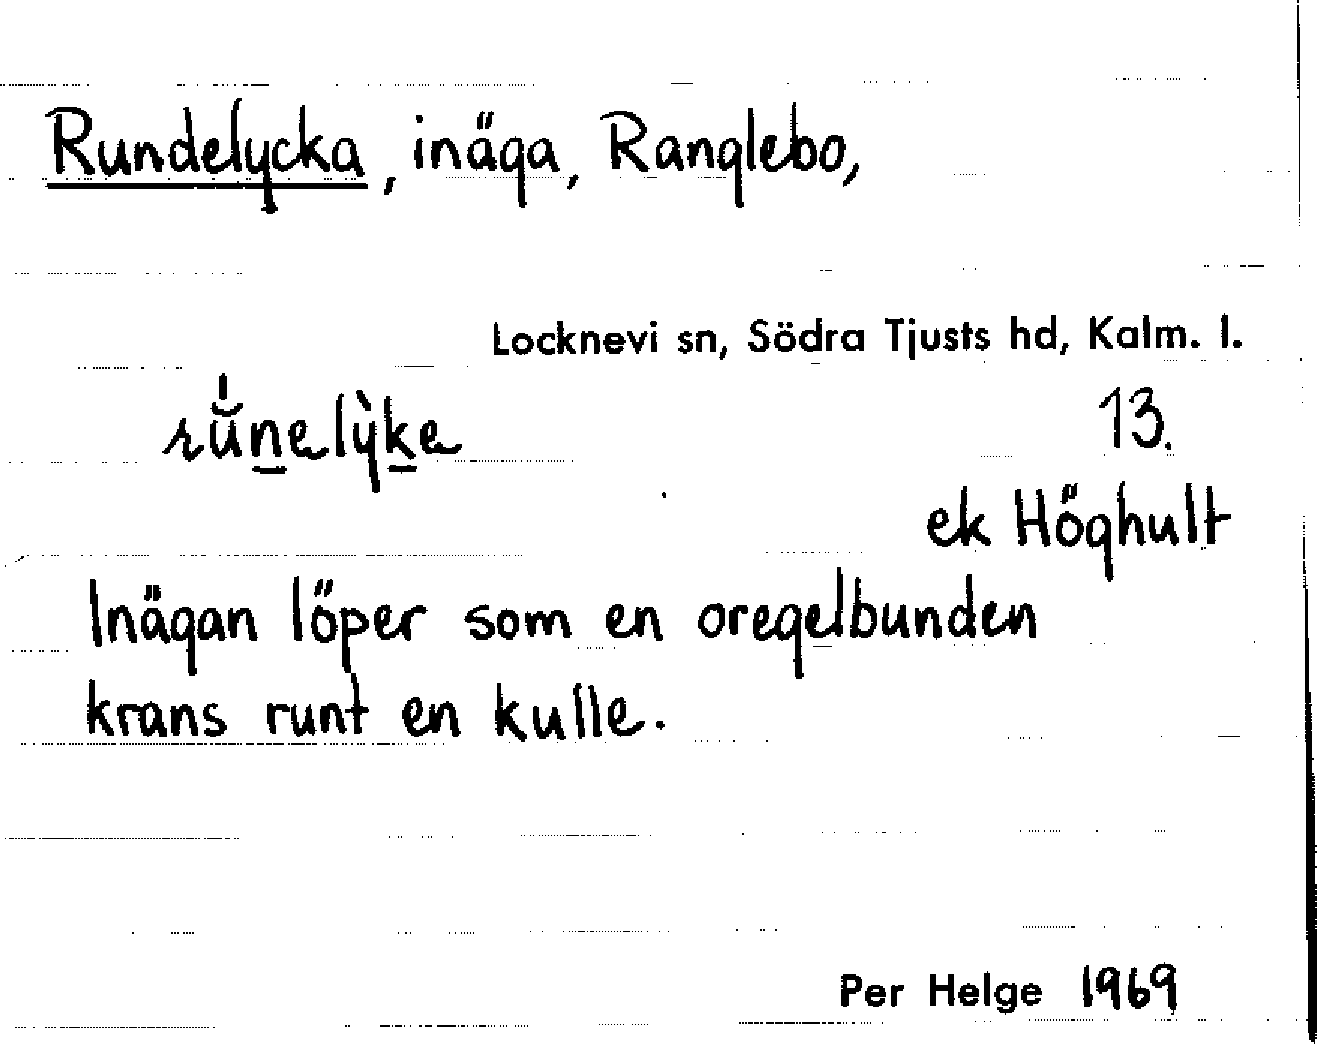 Rundelycka, inäga, Ranglebo,
Locknevi sn, Södra Tjusts hd, Kalm. l.
rŭ́n̲elỳk̲e 13.
ek Höghult
Inägan löper som en oregelbunden
krans runt en kulle.
Per Helge 1969